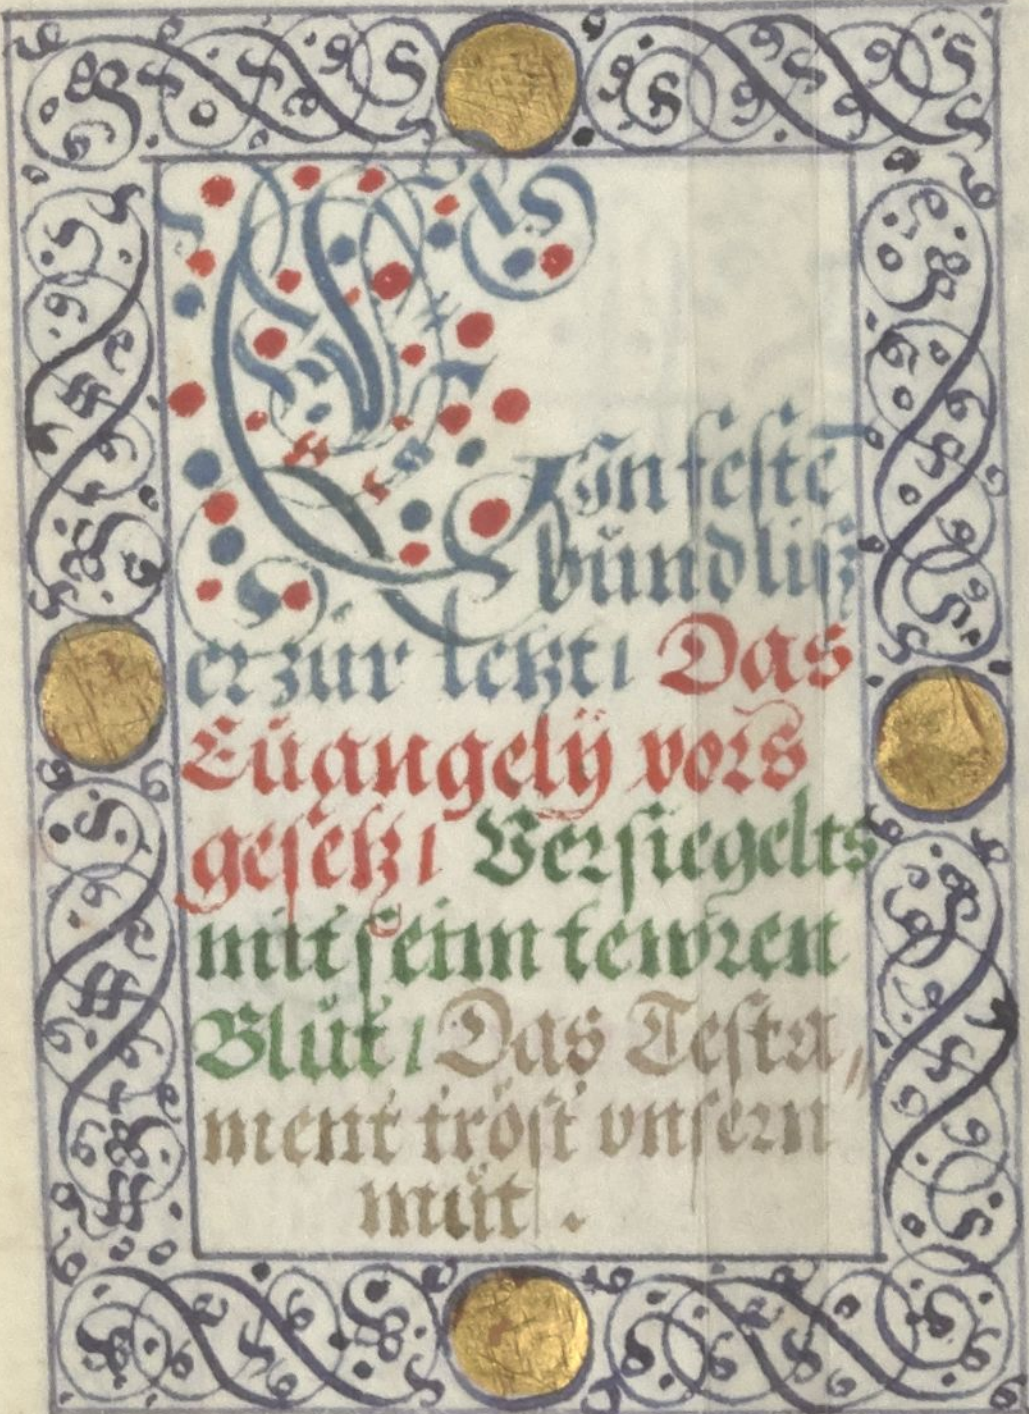 EIn feste
bündlich
er zůr letzt / Das
Eůangelÿ vors
gesetz / Versiegelts
mit seim tewren
Blůt / Das Testa„
ment tröst vnsern
můt .